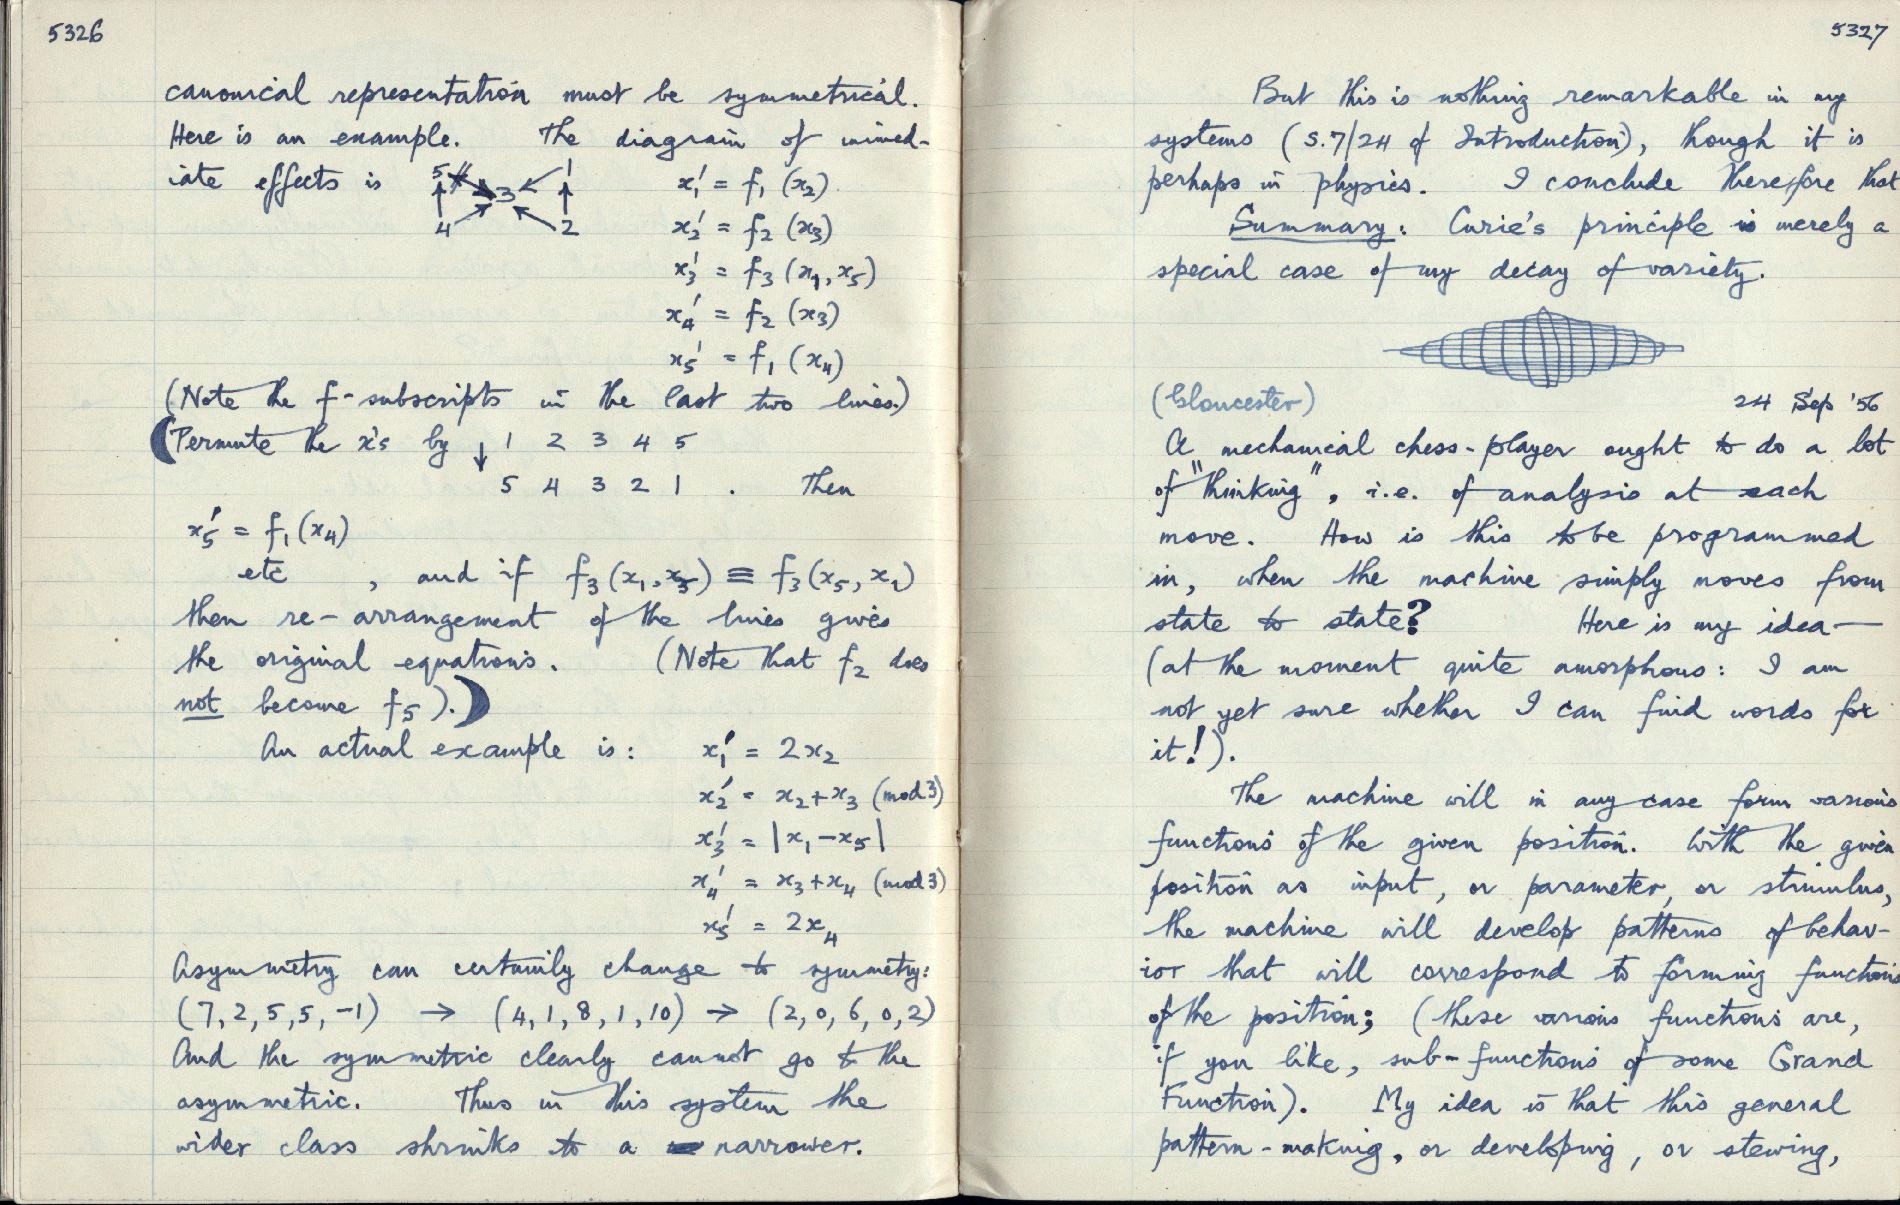 5326
canonical representation must be symmetrical.
Here is an example. The diagram of immed-
iate effects is 5 3 1 4 2 x₁' = f₁ (x₂)
x₂' = f₂ (x₃)
x₃' = f₃ (x₁, x₅)
x₄' = f₂ (x₃)
x₅' = f₁ (x₄)
(Note the f-subscripts in the last two lines.)
(Permute the x's by ↓ 1 2 3 4 5
5 4 3 2 1 . Then
x₅' = f₁(x₄)
etc , and if f₃(x₁, x₅) ≡ f₃(x₅, x₁)
then re-arrangement of the lines gives
the original equations. (Note that f₂ does
not become f₅).)
An actual example is: x₁' = 2x₂
x₂' = x₂+x₃ (mod 3)
x₃' = |x₁-x₅|
x₄' = x₃+x₄ (mod 3)
x₅' = 2x₄
Asymmetry can certainly change to symmetry:
(7,2,5,5,-1) → (4,1,8,1,10) → (2,0,6,0,2)
And the symmetric clearly cannot go to the
asymmetric. Thus in this system the
wider class shrinks to a narrower.
5327
But this is nothing remarkable in my
systems (S.7/24 of Introduction), though it is
perhaps in physics. I conclude therefore that
Summary: Curie's principle is merely a
special case of my decay of variety.
(Gloucester) 24 Sep '56
A mechanical chess-player ought to do a lot
of "thinking", i.e. of analysis at each
move. How is this to be programmed
in, when the machine simply moves from
state to state? Here is my idea—
(at the moment quite amorphous: I am
not yet sure whether I can find words for
it!).
The machine will in any case form various
functions of the given position. With the given
position as input, or parameter, or stimulus,
the machine will develop patterns of behav-
ior that will correspond to forming functions
of the position; (these various functions are,
if you like, sub-functions of some Grand
Function). My idea is that this general
pattern-making, or developing, or stewing,